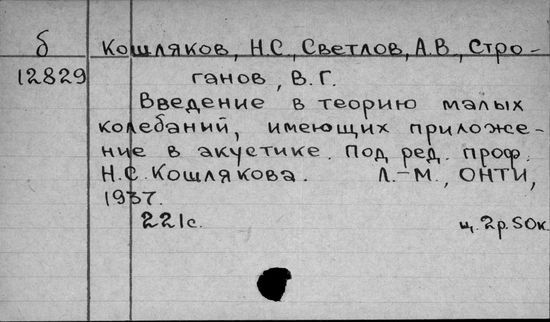 б Кошляков, Н.С., Светлов, А.В., Стро-
12829 ганов, В.Г.
Введение в теорию малых
колебаний, имеющих приложе-
ние в акустике. Под ред. проф.
Н.С. Кошлякова. Л.-М., ОНТИ,
1937.
221с. ц. 2р.50к